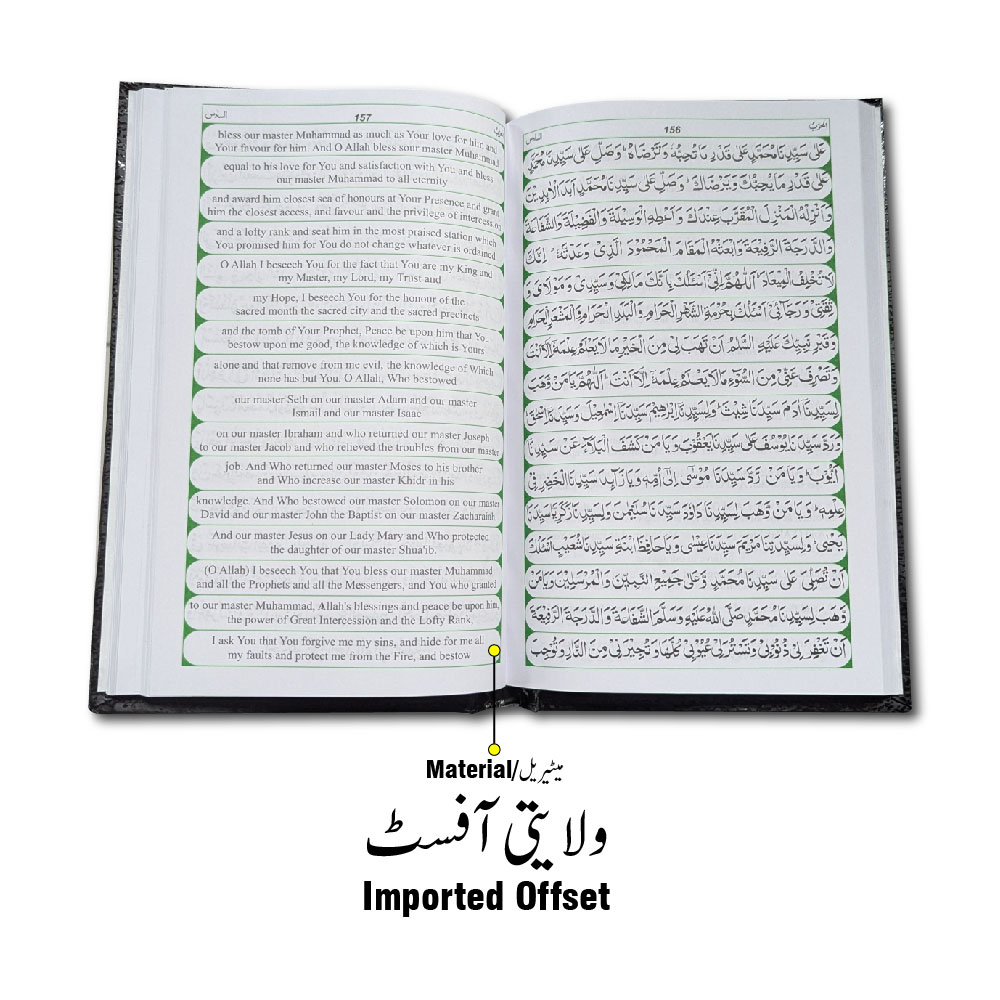 السادس
157
الحزب
bless our master Muhammad as much as Your love for him and
Your favour for him. And O Allah bless sour master Muhammad
equal to his love for You and satisfaction with You and bless
our master Muhammad to all eternity
and award him closest sea of honours at Your Presence and grant
him the closest access, and favour and the privilege of intercession
and a lofty rank and seat him in the most praised station which
You promised him for You do not change whatever is ordained
O Allah I beseech You for the fact that You are my King and
my Master, my Lord, my Trust and
my Hope, I beseech You for the honour of the
sacred month the sacred city and the sacred precincts
and the tomb of Your Prophet, Peace be upon him that You
bestow upon me good, the knowledge of which is Yours
alone and that remove from me evil, the knowledge of Which
none has but You. O Allah, Who bestowed
our master Seth on our master Adam and our master
Ismail and our master Isaac
on our master Ibraham and who returned our master Joseph
to our master Jacob and who relieved the troubles from our master
job. And Who returned our master Moses to his brother
and Who increase our master Khidr in his
knowledge. And Who bestowed our master Solomon on our master
David and our master John the Baptist on our master Zachariah
And our master Jesus on our Lady Mary and Who protected
the daughter of our master Shua'ib.
(O Allah) I beseech You that You bless our master Muhammad
and all the Prophets and all the Messengers, and You who granted
to our master Muhammad, Allah's blessings and peace be upon him,
the power of Great Intercession and the Lofty Rank.
I ask You that You forgive me my sins, and hide for me all
my faults and protect me from the Fire, and bestow
السادس
156
الحزب
عَلٰى سَيِّدِنَا مُحَمَّدٍ عَلٰى قَدْرِ مَا تُحِبُّهٗ وَتَرْضَاهُ وَصَلِّ عَلٰى سَيِّدِنَا مُحَمَّدٍ
عَلٰى قَدْرِ مَا يُحِبُّكَ وَيَرْضَاكَ وَصَلِّ عَلٰى سَيِّدِنَا مُحَمَّدٍ اَبَدَ الْاٰبِدِيْنَ
وَاَنْزِلْهُ الْمَنْزِلَ الْمُقَرَّبَ عِنْدَكَ وَاَعْطِهِ الْوَسِيْلَةَ وَالْفَضِيْلَةَ وَالشَّفَاعَةَ
وَالدَّرَجَةَ الرَّفِيْعَةَ وَابْعَثْهُ الْمَقَامَ الْمَحْمُوْدَ الَّذِىْ وَعَدْتَّهٗ اِنَّكَ
لَا تُخْلِفُ الْمِيْعَادَ اَللّٰهُمَّ اِنِّىْ اَسْئَلُكَ بِاَنَّكَ مَالِكِىْ وَسَيِّدِىْ وَمَوْلَاىَ وَ
ثِقَتِىْ وَرَجَائِىْ اَسْئَلُكَ بِحُرْمَةِ الشَّهْرِ الْحَرَامِ وَالْبَلَدِ الْحَرَامِ وَالْمَشْعَرِ الْحَرَامِ
وَقَبْرِ نَبِيِّكَ عَلَيْهِ السَّلَامُ اَنْ تَهَبَ لِىْ مِنَ الْخَيْرِ مَا لَا يَعْلَمُ عِلْمَهٗ اِلَّا اَنْتَ
وَتَصْرِفَ عَنِّىْ مِنَ السُّوْٓءِ مَا لَا يَعْلَمُ عِلْمَهٗ اِلَّا اَنْتَ اَللّٰهُمَّ يَا مَنْ وَهَبَ
لِسَيِّدِنَا اٰدَمَ سَيِّدَنَا شِيْثَ وَلِسَيِّدِنَا اِبْرَاهِيْمَ سَيِّدَنَا اِسْمٰعِيْلَ وَسَيِّدَنَا اِسْحٰقَ
وَرَدَّ سَيِّدَنَا يُوْسُفَ عَلٰى سَيِّدِنَا يَعْقُوْبَ وَيَا مَنْ كَشَفَ الْبَلَاءَ عَنْ سَيِّدِنَا
اَيُّوْبَ وَيَا مَنْ رَدَّ سَيِّدَنَا مُوْسٰى اِلٰى اُمِّهٖ وَيَا زَآئِدَ سَيِّدِنَا الْخَضِرِ فِىْ
عِلْمِهٖ وَيَا مَنْ وَّهَبَ لِسَيِّدِنَا دَاوٗدَ سَيِّدَنَا سُلَيْمٰنَ وَلِسَيِّدِنَا زَكَرِيَّا سَيِّدَنَا
يَحْيٰى وَلِسَيِّدَتِنَا مَرْيَمَ سَيِّدَنَا عِيْسٰى وَيَا حَافِظَ ابْنَةِ سَيِّدِنَا شُعَيْبٍ اَسْئَلُكَ
اَنْ تُصَلِّىَ عَلٰى سَيِّدِنَا مُحَمَّدٍ وَّعَلٰى جَمِيْعِ النَّبِيّٖنَ وَالْمُرْسَلِيْنَ وَيَا مَنْ
وَّهَبَ لِسَيِّدِنَا مُحَمَّدٍ صَلَّى اللّٰهُ عَلَيْهِ وَسَلَّمَ الشَّفَاعَةَ وَالدَّرَجَةَ الرَّفِيْعَةَ
اَنْ تَغْفِرَ لِىْ ذُنُوْبِىْ وَتَسْتُرَ لِىْ عُيُوْبِىْ كُلَّهَا وَتُجِيْرَنِىْ مِنَ النَّارِ وَتُوْجِبَ
Material/میٹیریل
ولایتی آفسٹ
Imported Offset